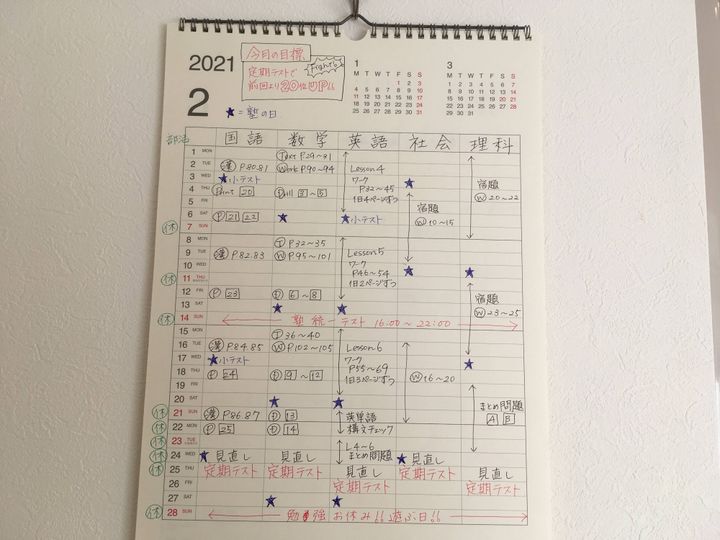 2021
2
今月の目標
Fight!!
定期テストで
前回より20位UP!!
★=塾の日
1
M T W T F S S
1 2 3
4 5 6 7 8 9 10
11 12 13 14 15 16 17
18 19 20 21 22 23 24
25 26 27 28 29 30 31
3
M T W T F S S
1 2 3 4 5 6 7
8 9 10 11 12 13 14
15 16 17 18 19 20 21
22 23 24 25 26 27 28
29 30 31
部活 国語 数学 英語 社会 理科
1 MON Ⓣext P.29~31
2 TUE 漢 P.80.81 Ⓦork P.90~94 Lesson4
3 WED ★小テスト ワーク ★ 宿題
4 THU Ⓟrint 20 Ⓓrill 3~5 P32~45 Ⓦ20~22
5 FRI 1日4ページずつ 宿題
6 SAT Ⓟ 21 22 ★ ★小テスト Ⓦ10~15
休 7 SUN
8 MON Ⓣ P.32~35
9 TUE 漢 P.82.83 Ⓦ P.95~101 Lesson5
10 WED ワーク ★ ★
休 11 THU P46~54
12 FRI Ⓟ 23 Ⓓ 6~8 1日2ページずつ 宿題
13 SAT ★ ★ Ⓦ23~25
休 14 SUN 塾統一テスト 16:00~22:00
15 MON Ⓣ 36~40
16 TUE 漢 P.84.85 Ⓦ P.102~105 Lesson6
17 WED ★小テスト ワーク ★
18 THU Ⓟ 24 Ⓓ 9~12 P55~69 Ⓦ16~20
19 FRI 1日3ページずつ
20 SAT ★ ★ まとめ問題
休 21 SUN 漢 P.86.87 Ⓓ 13 英単語 A B
休 22 MON Ⓟ 25 Ⓓ 14 構文チェック
休 23 TUE L4~6
休 24 WED ★見直し 見直し まとめ問題 ★見直し
休 25 THU 定期テスト 定期テスト 見直し 定期テスト 見直し
26 FRI 定期テスト 定期テスト
27 SAT ★ ★
休 28 SUN 勉強お休み!!遊ぶ日!!